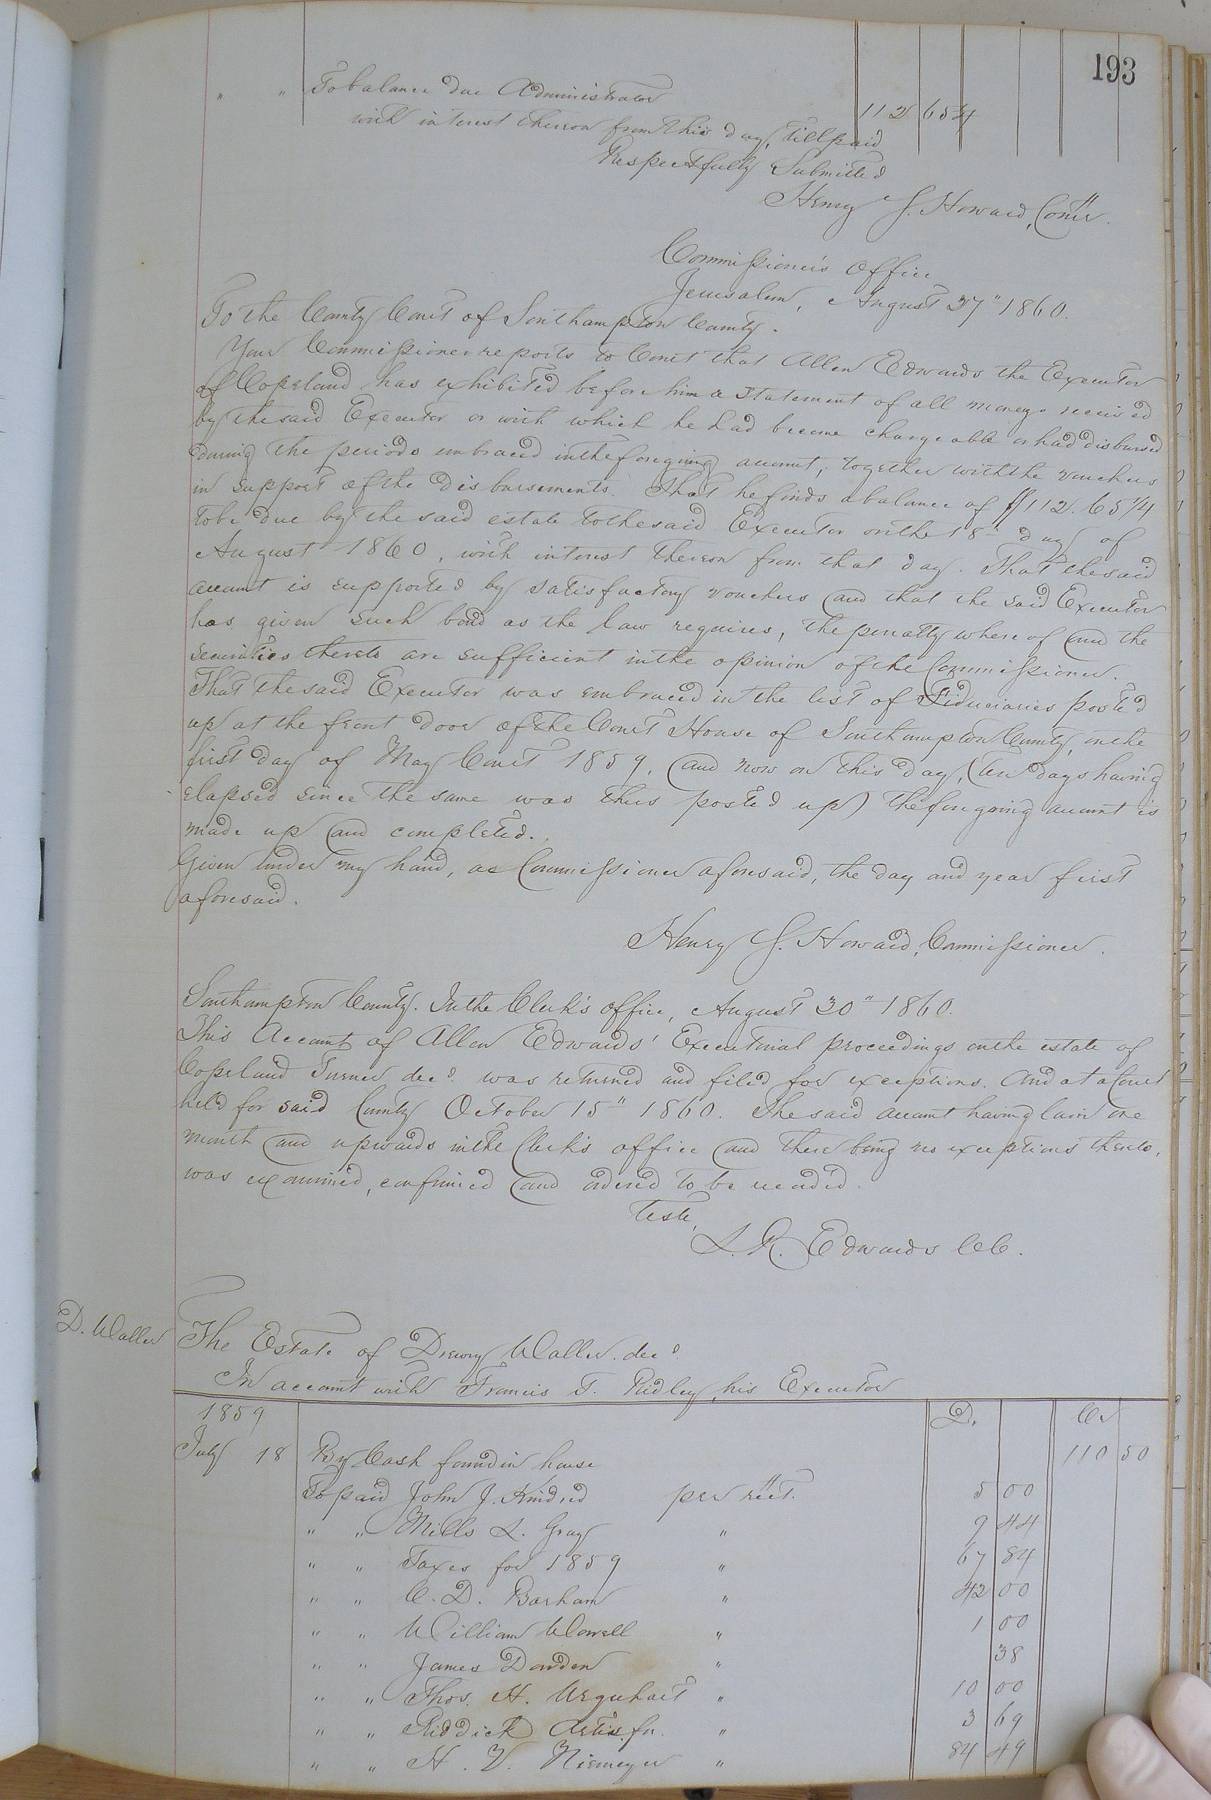 193
" " To balance due Administrator 112 65¼
with interest thereon from this day, till paid
Respectfully Submitted
Henry J. Howard, Com'r.
Commissioner's Office
Jerusalem, August 27" 1860.
To the County Court of Southampton County.
Your Commissioner reports to Court that Allen Edwards the Executor
of Copeland has exhibited before him a statement of all moneys received
by the said Executor or with which he had become chargeable or had disbursed
during the periods embraced in the foregoing account, together with the vouchers
in support of the disbursements. That he finds a balance of $112.65¼
to be due by the said estate to the said Executor on the 18th day of
August 1860, with interest thereon from that day. That the said
account is supported by satisfactory vouchers and that the said Executor
has given such bond as the law requires, the penalty whereof and the
securities thereto are sufficient in the opinion of the Commissioner.
That the said Executor was embraced in the list of Fiduciaries posted
up at the front door of the Court House of Southampton County, on the
first day of May Court 1859, and now on this day, (ten days having
elapsed since the same was thus posted up) the foregoing account is
made up and completed.
Given under my hand, as Commissioner aforesaid, the day and year first
aforesaid.
Henry J. Howard, Commissioner.
Southampton County. In the Clerk's office, August 30" 1860.
This Account of Allen Edwards' Executorial proceedings on the estate of
Copeland Turner dec'd. was returned and filed for exceptions. And at a Court
held for said County October 15" 1860. The said account having lain one
month and upwards in the Clerk's office and there being no exceptions thereto,
was examined, confirmed and ordered to be recorded.
Teste,
L. R. Edwards CC.
D. Waller
The Estate of Drewry Waller dec'd.
In account with Francis T. Ridley, his Executor
1859 D. Cr
July 18 By Cash found in house 110 50
To paid John J. Kindred per rect. 5 00
" " Mills L. Gray " 9 44
" " Taxes for 1859 " 67 84
" " C. D. Barham " 42 00
" " William Worrell " 1 00
" " James Darden " 38
" " Thos. H. Urquhart " 10 00
" " Riddick Artis fn. " 3 69
" " H. V. Niemeyer " 84 49